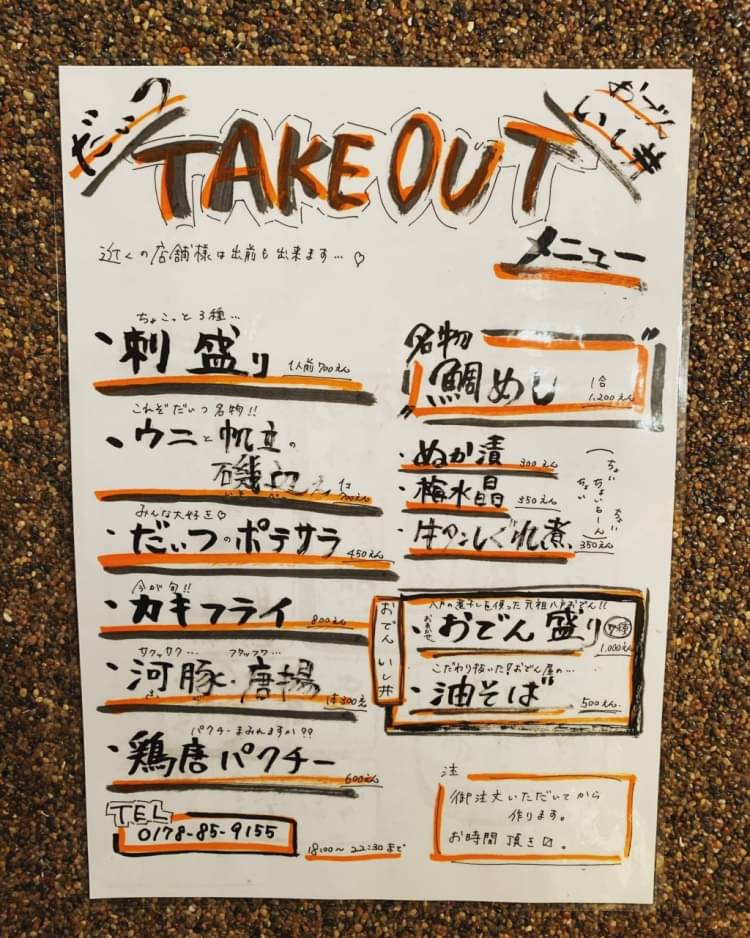 だいつ
TAKE OUT
おでん
いし井
メニュー
近くの店舗様は出前も出来ます…♡
ちょこっと3種…
・刺盛り 1人前700えん
これぞだいつ名物!!
・ウニと帆立の
磯 1コ
700えん
みんな大好き♡
・だいつのポテサラ 450えん
今が旬!!
・カキフライ 800えん
サクッサク… フワッフワ…
・河豚・唐揚 1コ300え
パクチーまみれますか??
・鶏唐パクチー 600えん
TEL
0178-85-9155
18:00〜22:30まで
名物
"鯛めし" 1合
1,200えん
ぬか漬 300えん
梅水晶 350えん
牛タンしぐれ煮 350えん
おでん いし井
八戸の煮干しを使った元祖八戸おでん!!
・おまかせ おでん盛り 7種
1,000えん
こだわり抜いたおでん屋の…
・油そば 500えん
注
御注文いただいてから
作ります。
お時間頂き〼。